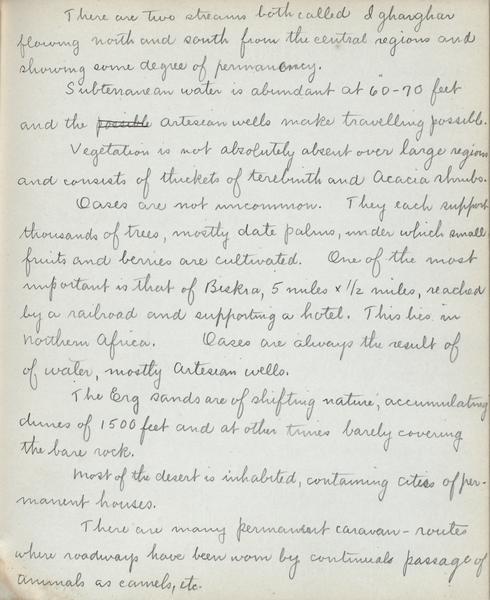 There are two streams both called Igharghar
flowing north and south from the central regions and
showing some degree of permanency.
Subterranean water is abundant at 60-70 feet
and the possible artesian wells make travelling possible.
Vegetation is not absolutely absent over large regions
and consists of thickets of terebinth and Acacia shrubs.
Oases are not uncommon. They each support
thousands of trees, mostly date palms, under which small
fruits and berries are cultivated. One of the most
important is that of Biskra, 5 miles x 1/2 miles, reached
by a railroad and supporting a hotel. This lies in
northern Africa. Oases are always the result of
of water, mostly Artesian wells.
The Erg sands are of shifting nature, accumulating
dunes of 1500 feet and at other times barely covering
the bare rock.
Most of the desert is inhabited, containing cities of per-
manent houses.
There are many permanent caravan-routes
where roadways have been worn by continuals passage of
animals as camels, etc.